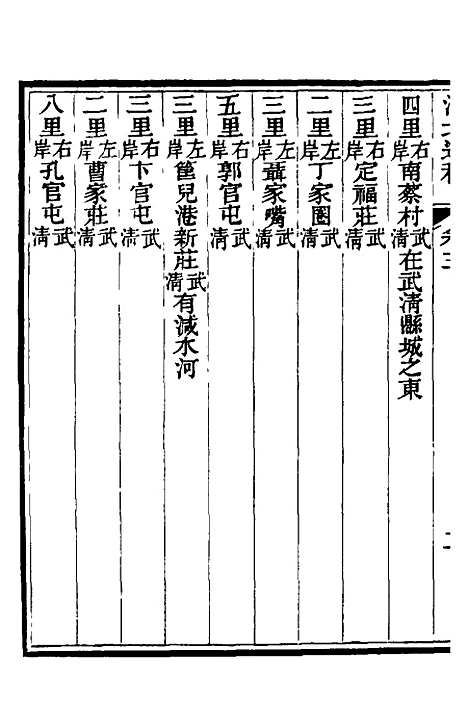 四里右岸南蔡村武清在武清縣城之東
三里右岸定福莊武清
二里左岸丁家圈武清
三里左岸聶家嘴武清
五里右岸郭官屯武清
三里左岸筐兒港新莊武清有減水河
三里右岸卞官屯武清
二里左岸曹家莊武清
八里右岸孔官屯武清